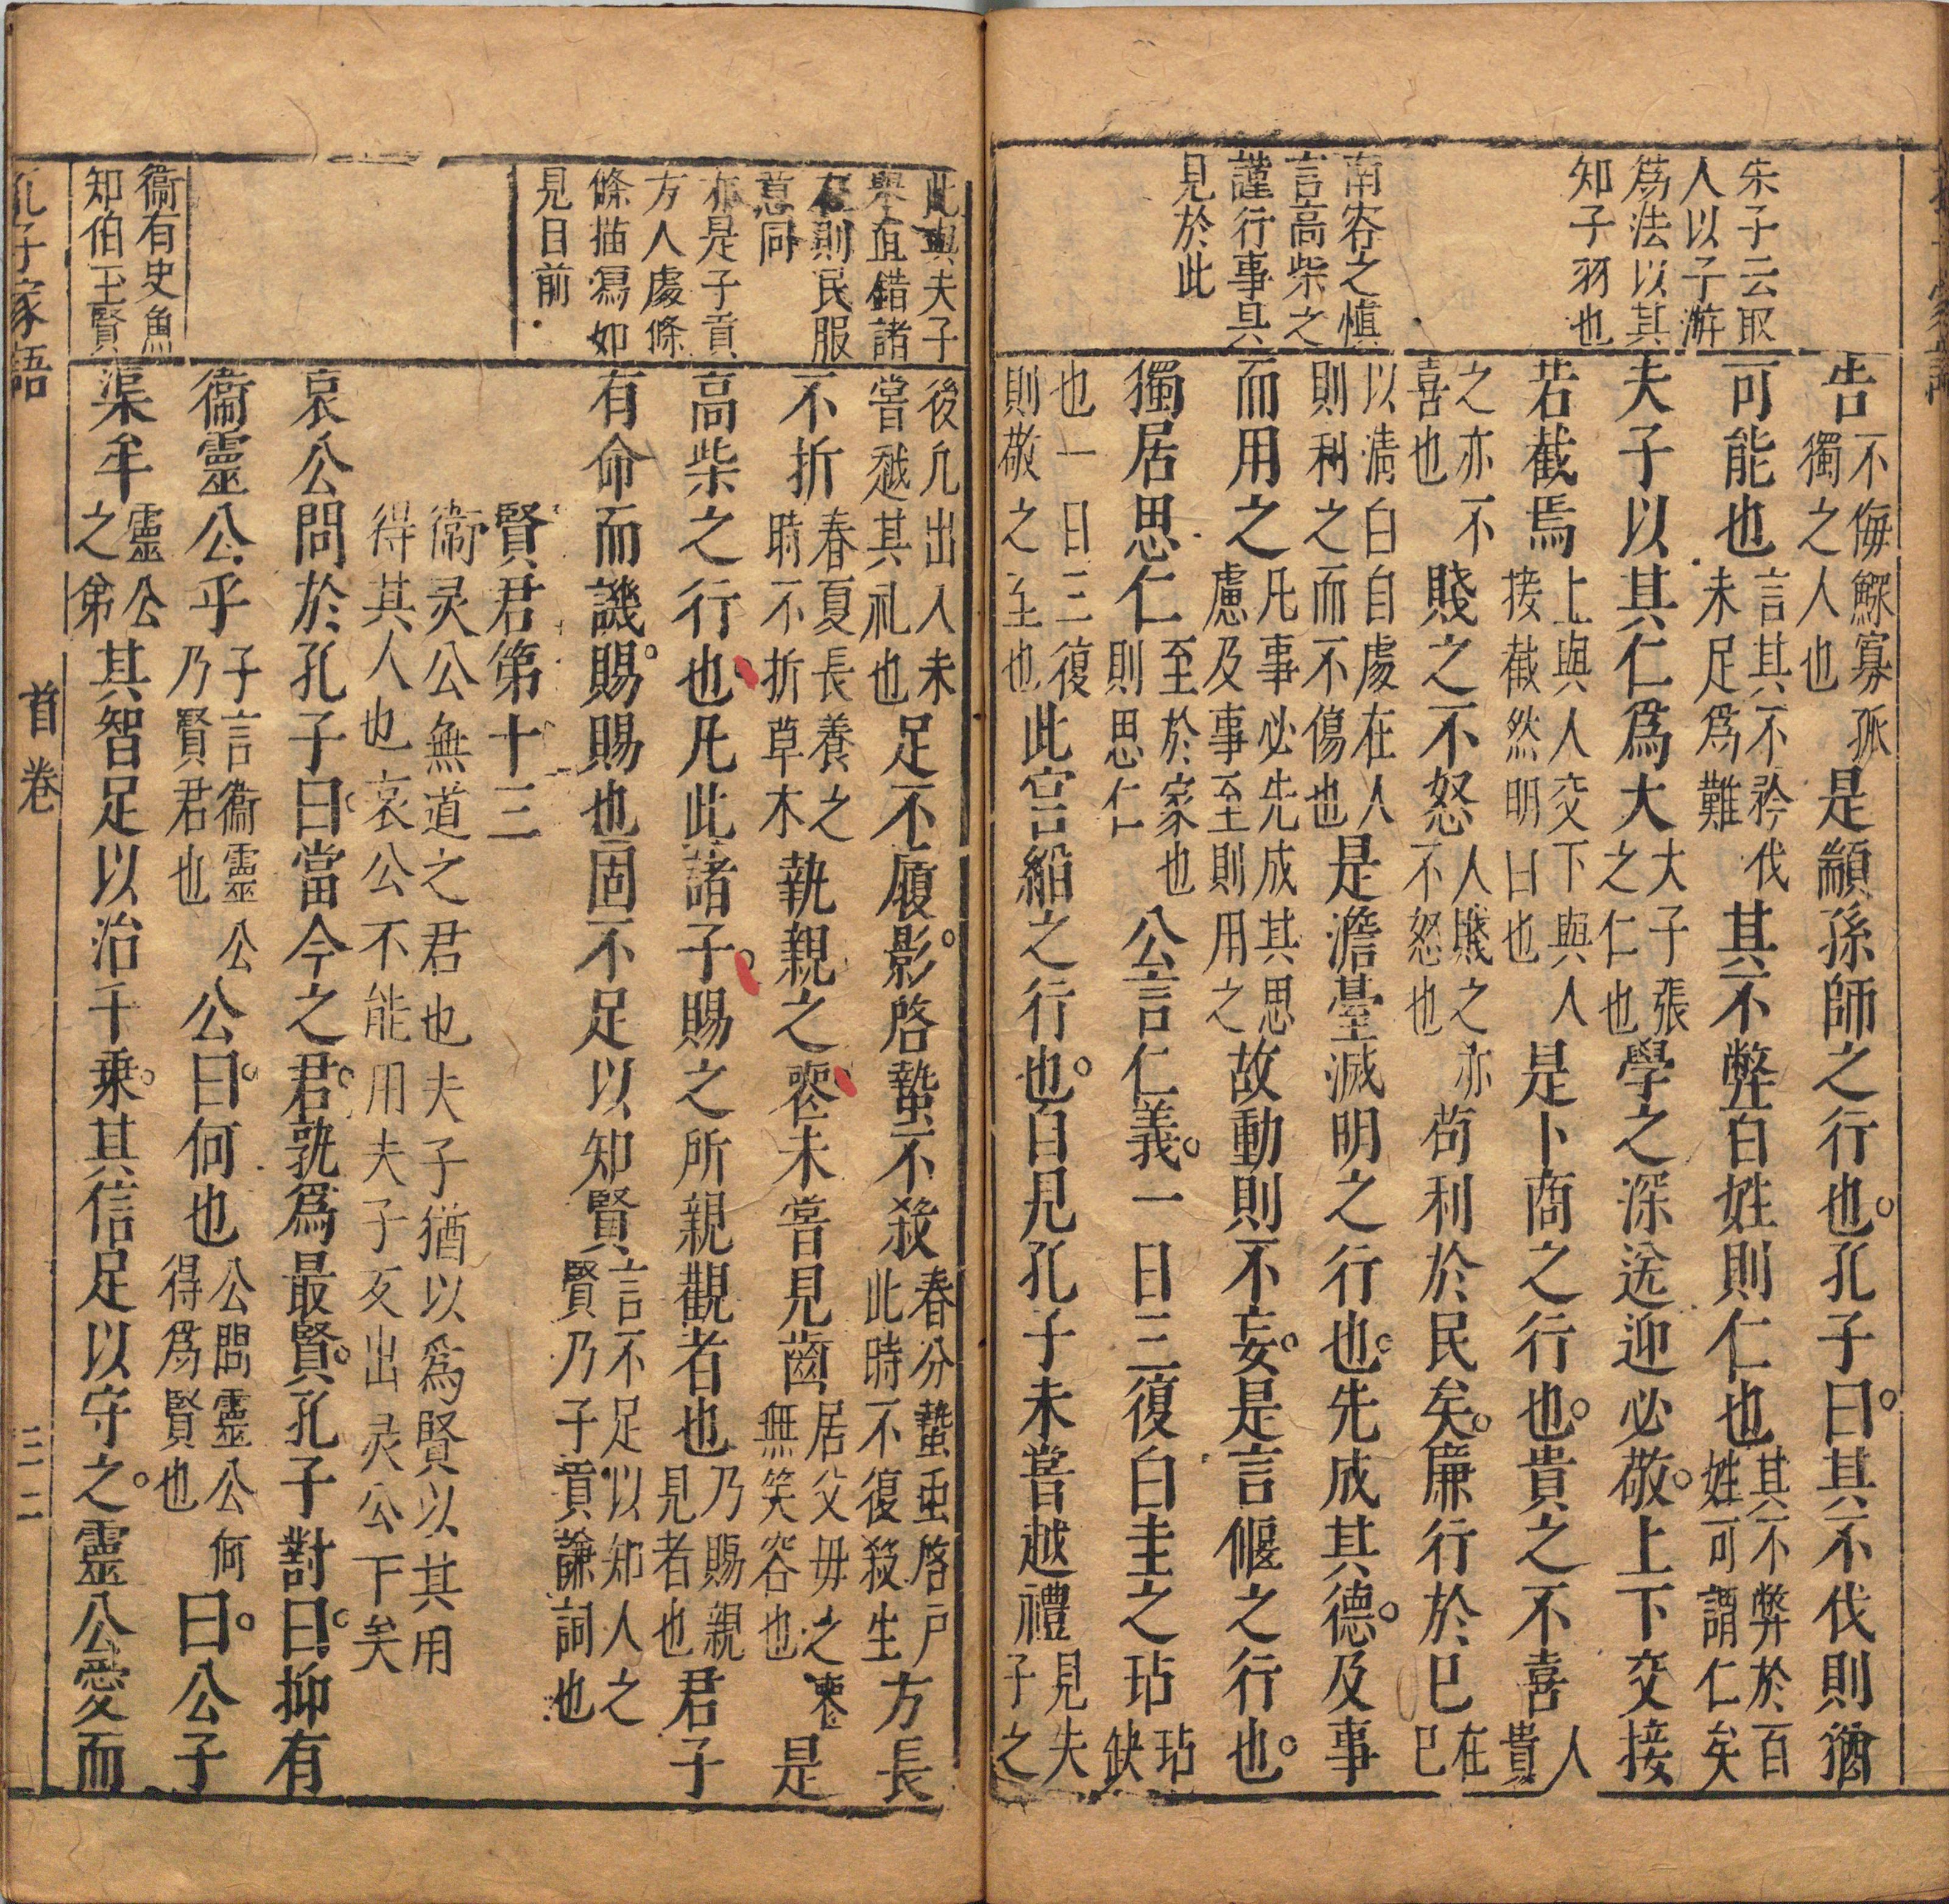 朱子云取
人以子游
爲法以其
知子羽也
南容之慎
言高柴之
謹行事具
見於此
告不侮鰥寡孤獨之人也是顓孫師之行也孔子曰其不伐則猶
可能也言其不矜伐未足爲難其不弊百姓則仁也其不弊於百姓可謂仁矣
夫子以其仁爲大大子張之仁也學之深送迎必敬上下交接
若截焉上與人交下與人接截然明曰也是卜商之行也貴之不喜人貴
之亦不喜也賤之不怒人賤之亦不怒也苟利於民矣廉行於已在已
以清白自處在人則利之而不傷也是澹臺滅明之行也先成其德及事
而用之凡事必先成其思慮及事至則用之故動則不妄是言偃之行也
獨居思仁至於家也則思仁公言仁義一日三復白圭之玷玷缺
也一日三復則敬之至也此宮縚之行也自見孔子未嘗越禮見夫子之
此與夫子
舉直錯諸
枉則民服
意同
亦是子貢
方人處條
條描寫如
見目前
衞有史魚
知伯玉賢
後凡出入未嘗越其礼也足不履影啓蟄不殺春分蟄虫啓户此時不復殺生方長
不折春夏長養之時不折草木執親之喪未嘗見齒居父毋之喪無笑容也是
高柴之行也凡此諸子賜之所親觀者也乃賜親見者也君子
有命而譏賜賜也固不足以知賢言不足以知人之賢乃子貢謙詞也
賢君第十三
衞灵公無道之君也夫子猶以爲賢以其用
得其人也哀公不能用夫子反出灵公下矣
哀公問於孔子曰當今之君孰爲最賢孔子對曰抑有
衞靈公乎子言衞靈公乃賢君也公曰何也公問靈公何得爲賢也曰公子
渠牟靈公之弟其智足以治千乘其信足以守之靈公愛而
孔子家語
首卷
三二